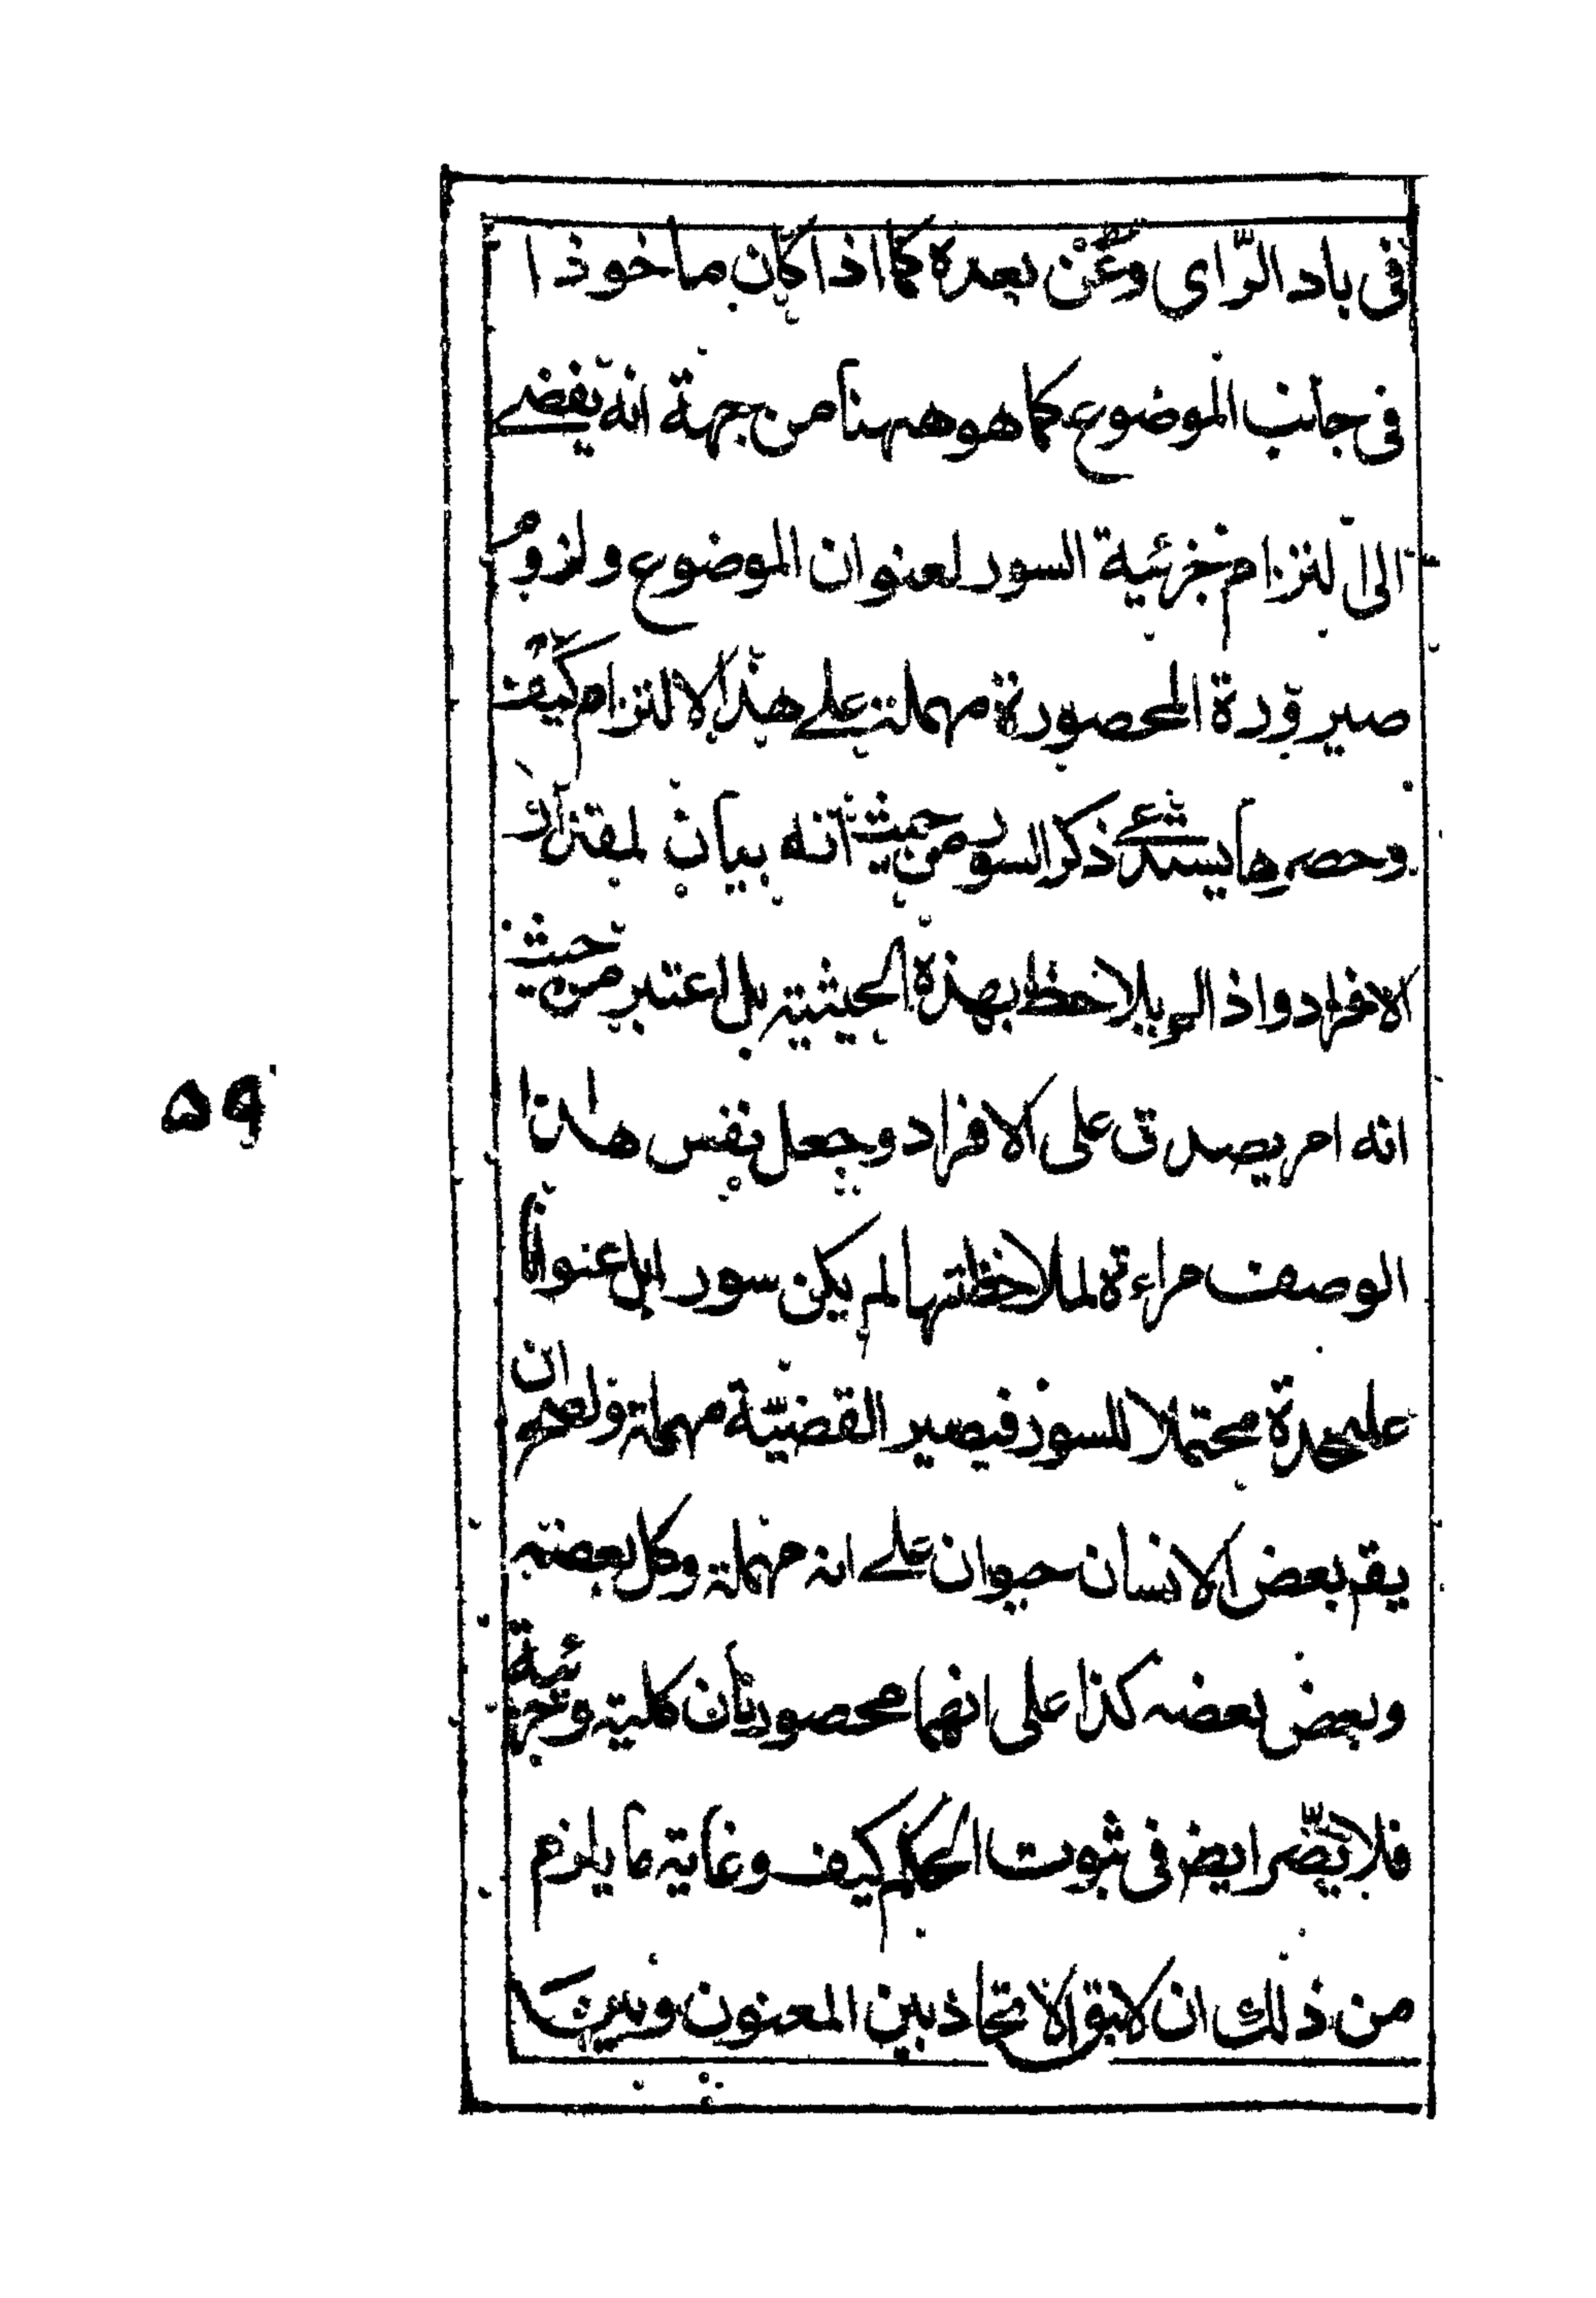 فى باد الرّاى وعن بعده كما اذا كان ماخوذا
فى جانب الموضوع كما هو ههنا من جهة انه يفضے
الى التزام جزئية السور لعنوان الموضوع ولزوم
صيرورة المحصورة مهملة علے هذا الالتزام كيف
وحصرها يستدعے ذكر السور من حيث انه بيان لمقدار
الافراد واذا لم يلاحظ بهذه الحيثية بل اعتبر من حيث
انه امر يصدق على الافراد وجعل نفس هذا
الوصف مراءة لملاحظتها لم يكن سورا بل عنوانا
عليحدة محتملا للسور فيصير القضيّة مهملة ولصح ان
يقم بعض الانسان حيوان علے انه مهملة وكل بعضه
وبعض بعضه كذا على انهما محصورتان كلية وجزئية
فلا يضّر ايض فى ثبوت الحكم كيف وغاية ما يلزم
من ذلك ان لا يبقى الاتحاد بين المعنون وبين
۵۹